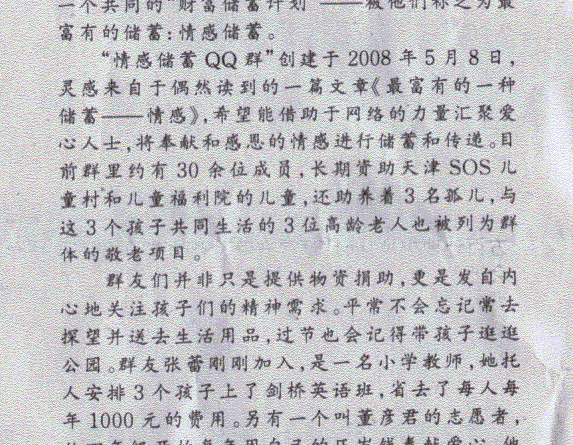 一个共同的“财富储蓄计划”——被他们称之为最
富有的储蓄：情感储蓄。
“情感储蓄 QQ 群”创建于 2008 年 5 月 8 日，
灵感来自于偶然读到的一篇文章《最富有的一种
储蓄——情感》，希望能借助于网络的力量汇聚爱
心人士，将奉献和感恩的情感进行储蓄和传递。目
前群里约有 30 余位成员，长期资助天津 SOS 儿
童村和儿童福利院的儿童，还助养着 3 名孤儿，与
这 3 个孩子共同生活的 3 位高龄老人也被列为群
体的敬老项目。
群友们并非只是提供物资捐助，更是发自内
心地关注孩子们的精神需求。平常不会忘记常去
探望并送去生活用品，过节也会记得带孩子逛逛
公园。群友张蕾刚刚加入，是一名小学教师，她托
人安排 3 个孩子上了剑桥英语班，省去了每人每
年 1000 元的费用。另有一个叫董彦君的志愿者，